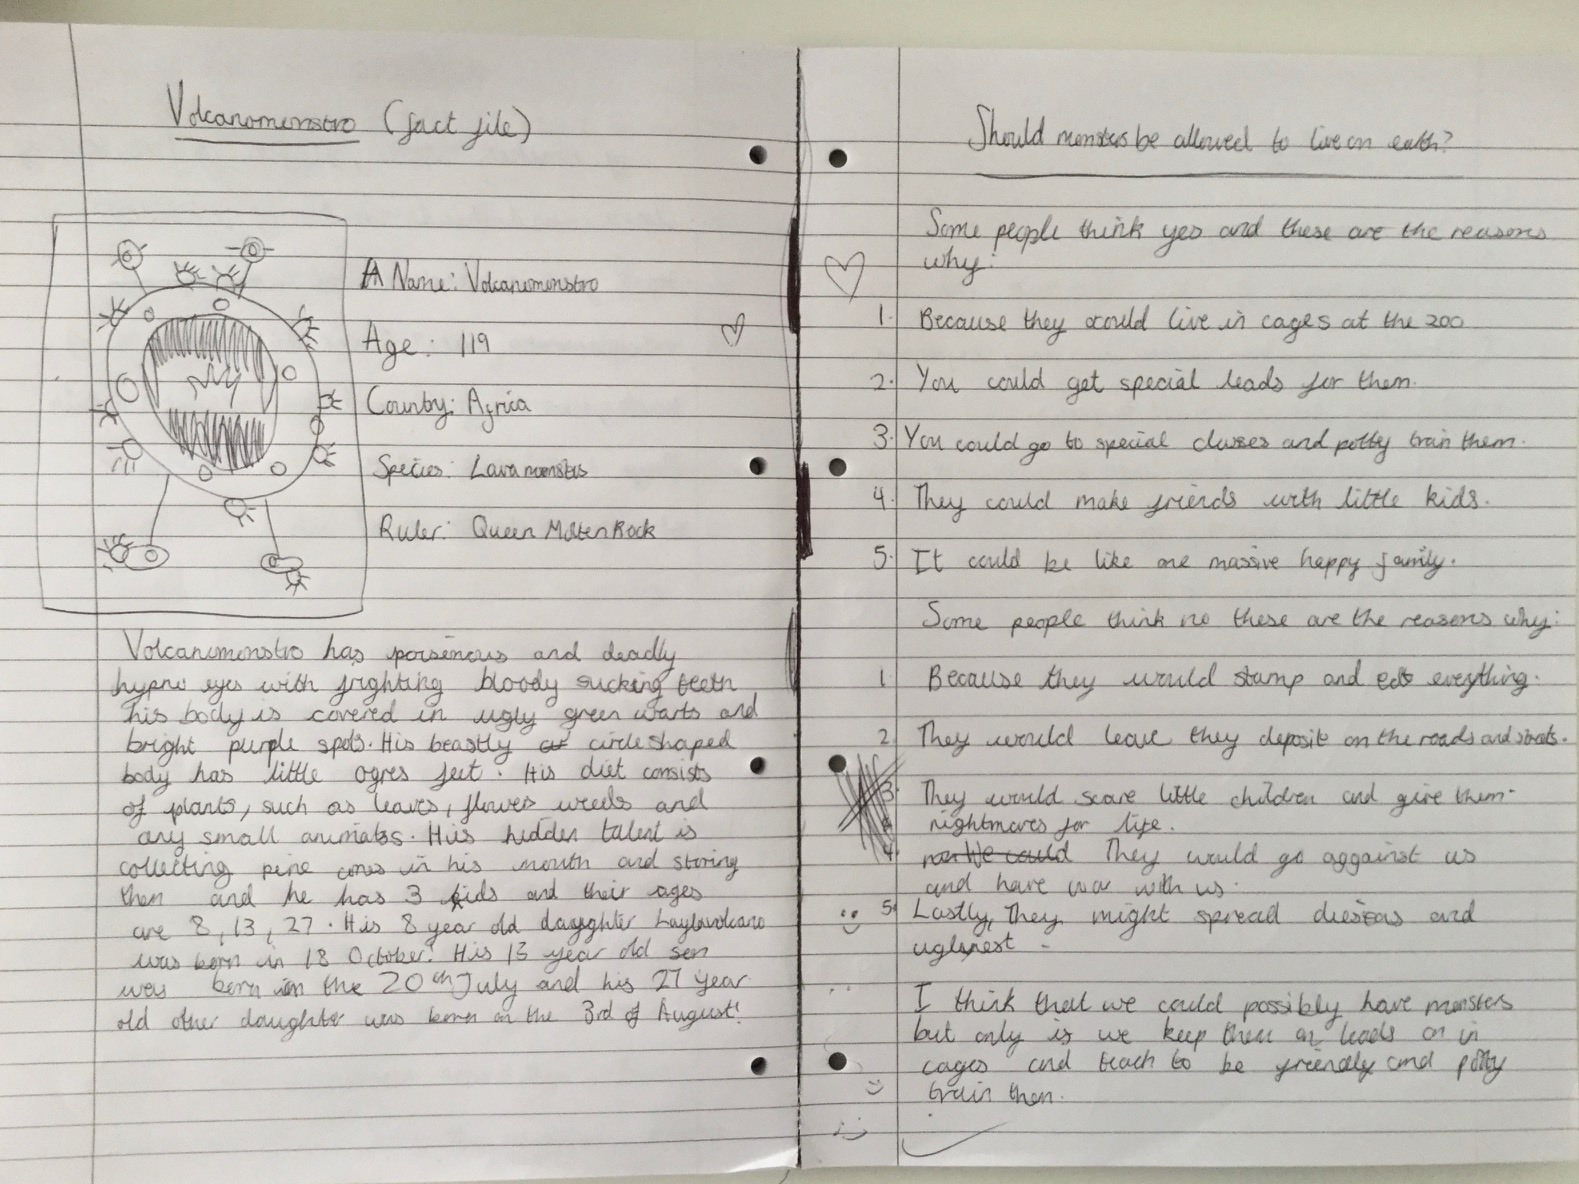 Volcanomonstro (fact file)
Name: Volcanomonstro
Age: 119
Country: Africa
Species: Lava monsters
Ruler: Queen Molten Rock
Volcanomonstro has poisenous and deadly
hypno eyes with frighting bloody sucking teeth
his body is covered in ugly green warts and
bright purple spots. His beastly circle shaped
body has little ogres feet. His diet consists
of plants, such as leaves, flower weeds and
any small animals. His hidden talent is
collecting pine cones in his mouth and storing
then and he has 3 kids and their ages
are 8, 13, 27. His 8 year old dayghter Laylavolcano
was born in 18 October. His 13 year old son
was born in the 20th July and his 27 year
old other daughter was born on the 3rd of August!
Should monsters be allowed to live on earth?
Some people think yes and these are the reasons
why:
1. Because they could live in cages at the zoo
2. You could get special leads for them.
3. You could go to special classes and potty train them.
4. They could make friends with little kids.
5. It could be like one massive happy family.
Some people think no these are the reasons why:
1 Because they would stamp and eat everything.
2. They would leave they deposit on the roads and streets.
3. They would scare little children and give them
nightmares for life.
4. They would go aggainst us
and have war with us.
5. Lastly, They might spread and
I think that we could possibly have monsters
but only is we keep them on leads or in
cages and teach to be friendly and potty
train then.